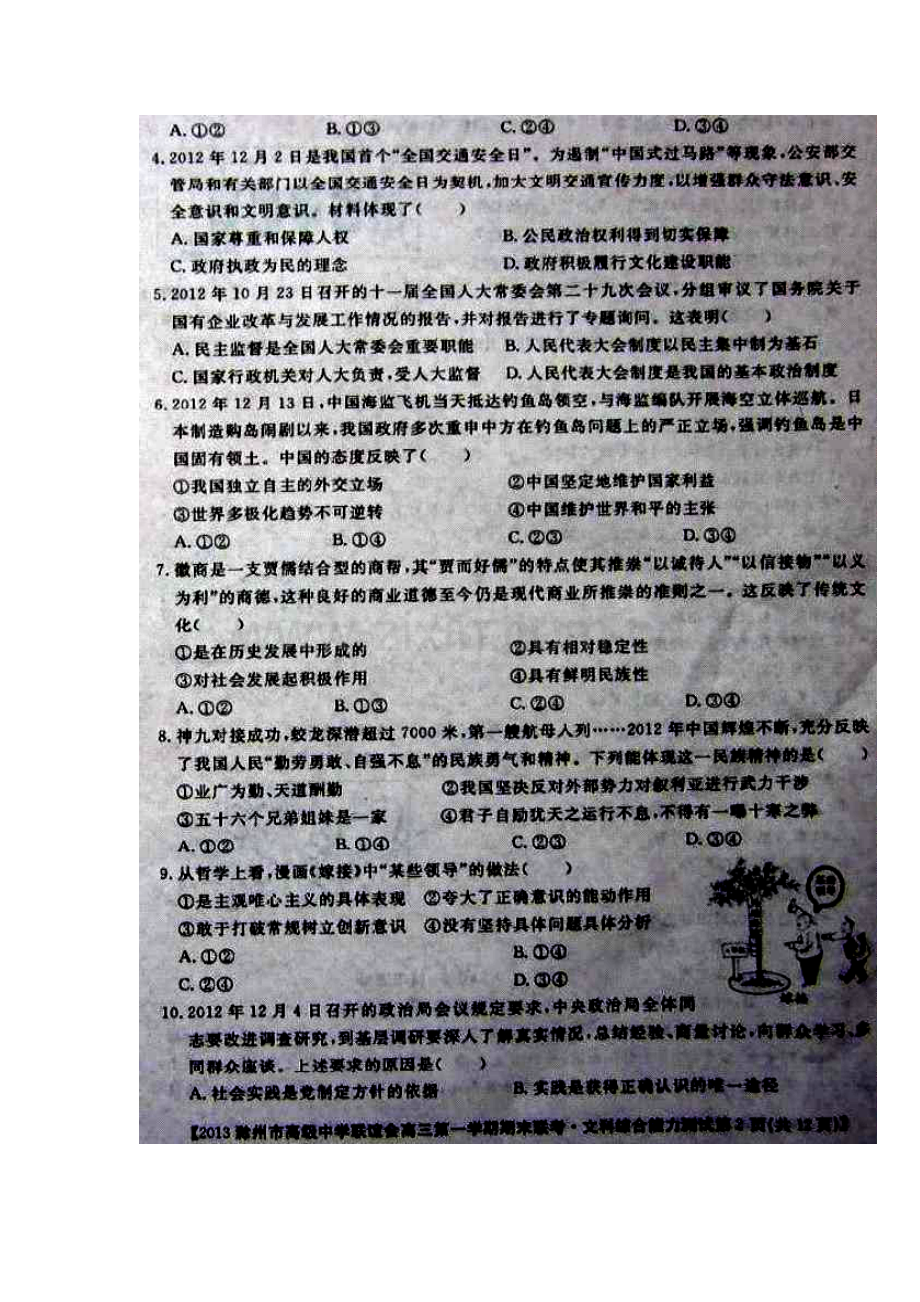 A.①② B.①③ C.②④ D.③④
4.2012年12月2日是我国首个“全国交通安全日”。为遏制“中国式过马路”等现象,公安部交
管局和有关部门以全国交通安全日为契机,加大文明交通宣传力度,以增强群众守法意识、安
全意识和文明意识。材料体现了( )
A.国家尊重和保障人权 B.公民政治权利得到切实保障
C.政府执政为民的理念 D.政府积极履行文化建设职能
5.2012年10月23日召开的十一届全国人大常委会第二十九次会议,分组审议了国务院关于
国有企业改革与发展工作情况的报告,并对报告进行了专题询问。这表明( )
A.民主监督是全国人大常委会重要职能 B.人民代表大会制度以民主集中制为基石
C.国家行政机关对人大负责,受人大监督 D.人民代表大会制度是我国的基本政治制度
6.2012年12月13日,中国海监飞机当天抵达钓鱼岛领空,与海监编队开展海空立体巡航。日
本制造购岛闹剧以来,我国政府多次重申中方在钓鱼岛问题上的严正立场,强调钓鱼岛是中
国固有领土。中国的态度反映了( )
①我国独立自主的外交立场 ②中国坚定地维护国家利益
③世界多极化趋势不可逆转 ④中国维护世界和平的主张
A.①② B.①④ C.②③ D.③④
7.徽商是一支贾儒结合型的商帮,其“贾而好儒”的特点使其推崇“以诚待人”“以信接物”“以义
为利”的商德,这种良好的商业道德至今仍是现代商业所推崇的准则之一。这反映了传统文
化( )
①是在历史发展中形成的 ②具有相对稳定性
③对社会发展起积极作用 ④具有鲜明民族性
A.①② B.①③ C.②④ D.③④
8.神九对接成功,蛟龙深潜超过7000米,第一艘航母入列……2012年中国辉煌不断,充分反映
了我国人民“勤劳勇敢、自强不息”的民族勇气和精神。下列能体现这一民族精神的是( )
①业广为勤、天道酬勤 ②我国坚决反对外部势力对叙利亚进行武力干涉
③五十六个兄弟姐妹是一家 ④君子自励犹天之运行不息,不得有一曝十寒之弊
A.①② B.①④ C.②③ D.③④
9.从哲学上看,漫画《嫁接》中“某些领导”的做法( )
①是主观唯心主义的具体表现 ②夸大了正确意识的能动作用
③敢于打破常规树立创新意识 ④没有坚持具体问题具体分析
A.①② B.①④
C.②④ D.③④
嫁接
10.2012年12月4日召开的政治局会议规定要求,中央政治局全体同
志要改进调查研究,到基层调研要深入了解真实情况,总结经验、商量讨论,向群众学习、多
同群众座谈。上述要求的原因是( )
A.社会实践是党制定方针的依据 B.实践是获得正确认识的唯一途径
【2013滁州市高级中学联谊会高三第一学期期末联考·文科综合能力测试第2页(共12页)】